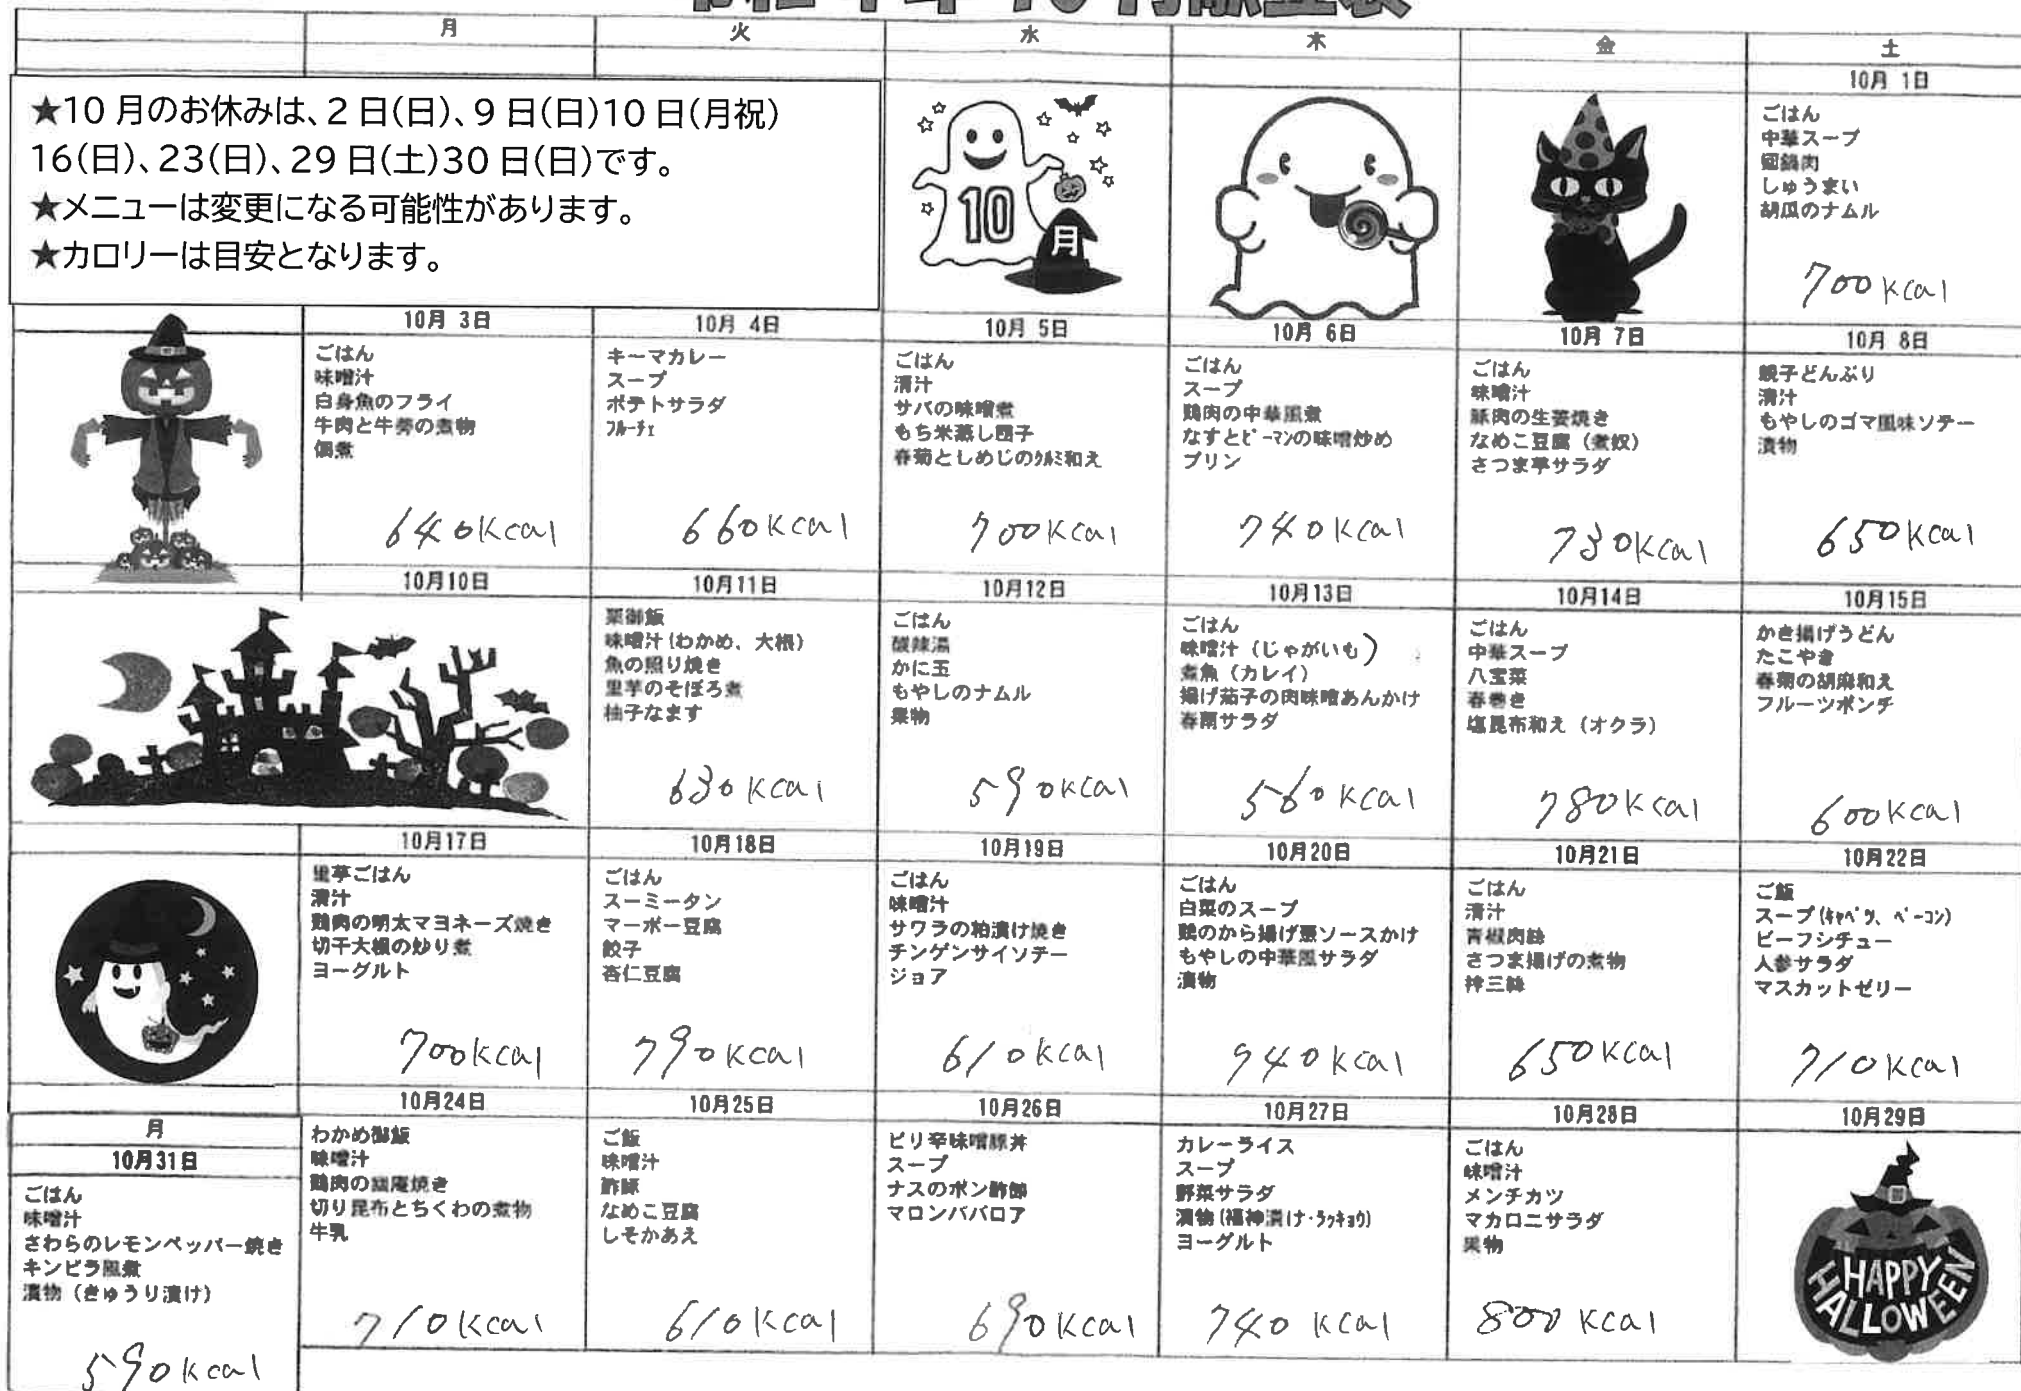 月
火
水
木
金
土
★10月のお休みは、2日(日)、9日(日)10日(月祝)
16(日)、23(日)、29日(土)30日(日)です。
★メニューは変更になる可能性があります。
★カロリーは目安となります。
10
月
10月 1日
ごはん
中華スープ
回鍋肉
しゅうまい
胡瓜のナムル
700kcal
10月 3日
ごはん
味噌汁
白身魚のフライ
牛肉と牛蒡の煮物
佃煮
640kcal
10月 4日
キーマカレー
スープ
ポテトサラダ
フルーチェ
660kcal
10月 5日
ごはん
清汁
サバの味噌煮
もち米蒸し団子
春菊としめじのクルミ和え
700kcal
10月 6日
ごはん
スープ
鶏肉の中華風煮
なすとピーマンの味噌炒め
プリン
740kcal
10月 7日
ごはん
味噌汁
豚肉の生姜焼き
なめこ豆腐(煮奴)
さつま芋サラダ
730kcal
10月 8日
親子どんぶり
清汁
もやしのゴマ風味ソテー
漬物
650kcal
10月10日
10月11日
栗御飯
味噌汁(わかめ、大根)
魚の照り焼き
里芋のそぼろ煮
柚子なます
630kcal
10月12日
ごはん
酸辣湯
かに玉
もやしのナムル
果物
590kcal
10月13日
ごはん
味噌汁(じゃがいも)
煮魚(カレイ)
揚げ茄子の肉味噌あんかけ
春雨サラダ
560kcal
10月14日
ごはん
中華スープ
八宝菜
春巻き
塩昆布和え(オクラ)
780kcal
10月15日
かき揚げうどん
たこやき
春菊の胡麻和え
フルーツポンチ
600kcal
10月17日
里芋ごはん
清汁
鶏肉の明太マヨネーズ焼き
切干大根の炒り煮
ヨーグルト
700kcal
10月18日
ごはん
スーミータン
マーボー豆腐
餃子
杏仁豆腐
790kcal
10月19日
ごはん
味噌汁
サワラの粕漬け焼き
チンゲンサイソテー
ジョア
610kcal
10月20日
ごはん
白菜のスープ
鶏のから揚げ葱ソースかけ
もやしの中華風サラダ
漬物
740kcal
10月21日
ごはん
清汁
青椒肉絲
さつま揚げの煮物
拌三絲
650kcal
10月22日
ご飯
スープ(キャベツ、ベーコン)
ビーフシチュー
人参サラダ
マスカットゼリー
710kcal
10月24日
わかめ御飯
味噌汁
鶏肉の幽庵焼き
切り昆布とちくわの煮物
牛乳
710kcal
10月25日
ご飯
味噌汁
酢豚
なめこ豆腐
しそかあえ
610kcal
10月26日
ピリ辛味噌豚丼
スープ
ナスのポン酢
マロンババロア
690kcal
10月27日
カレーライス
スープ
野菜サラダ
漬物(福神漬け・ラッキョウ)
ヨーグルト
740kcal
10月28日
ごはん
味噌汁
メンチカツ
マカロニサラダ
果物
800kcal
10月29日
HAPPY
HALLOWEEN
月
10月31日
ごはん
味噌汁
さわらのレモンペッパー焼き
キンピラ風煮
漬物(きゅうり漬け)
590kcal